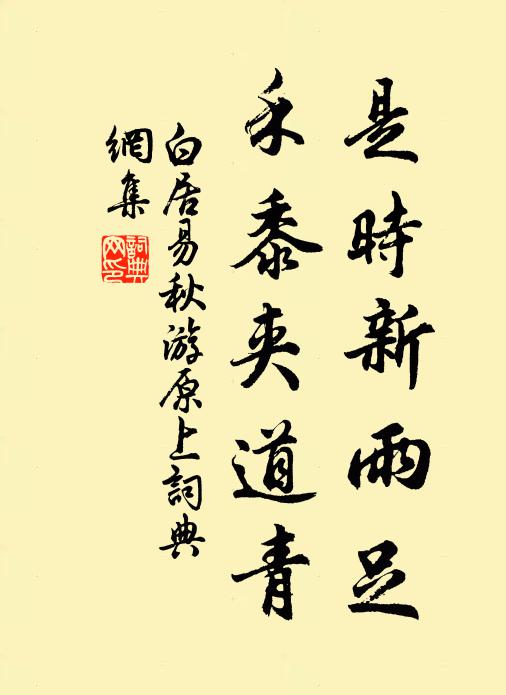 是時新雨足
禾黍夾道青
白居易秋游原上詞典
網集
詞典
网印